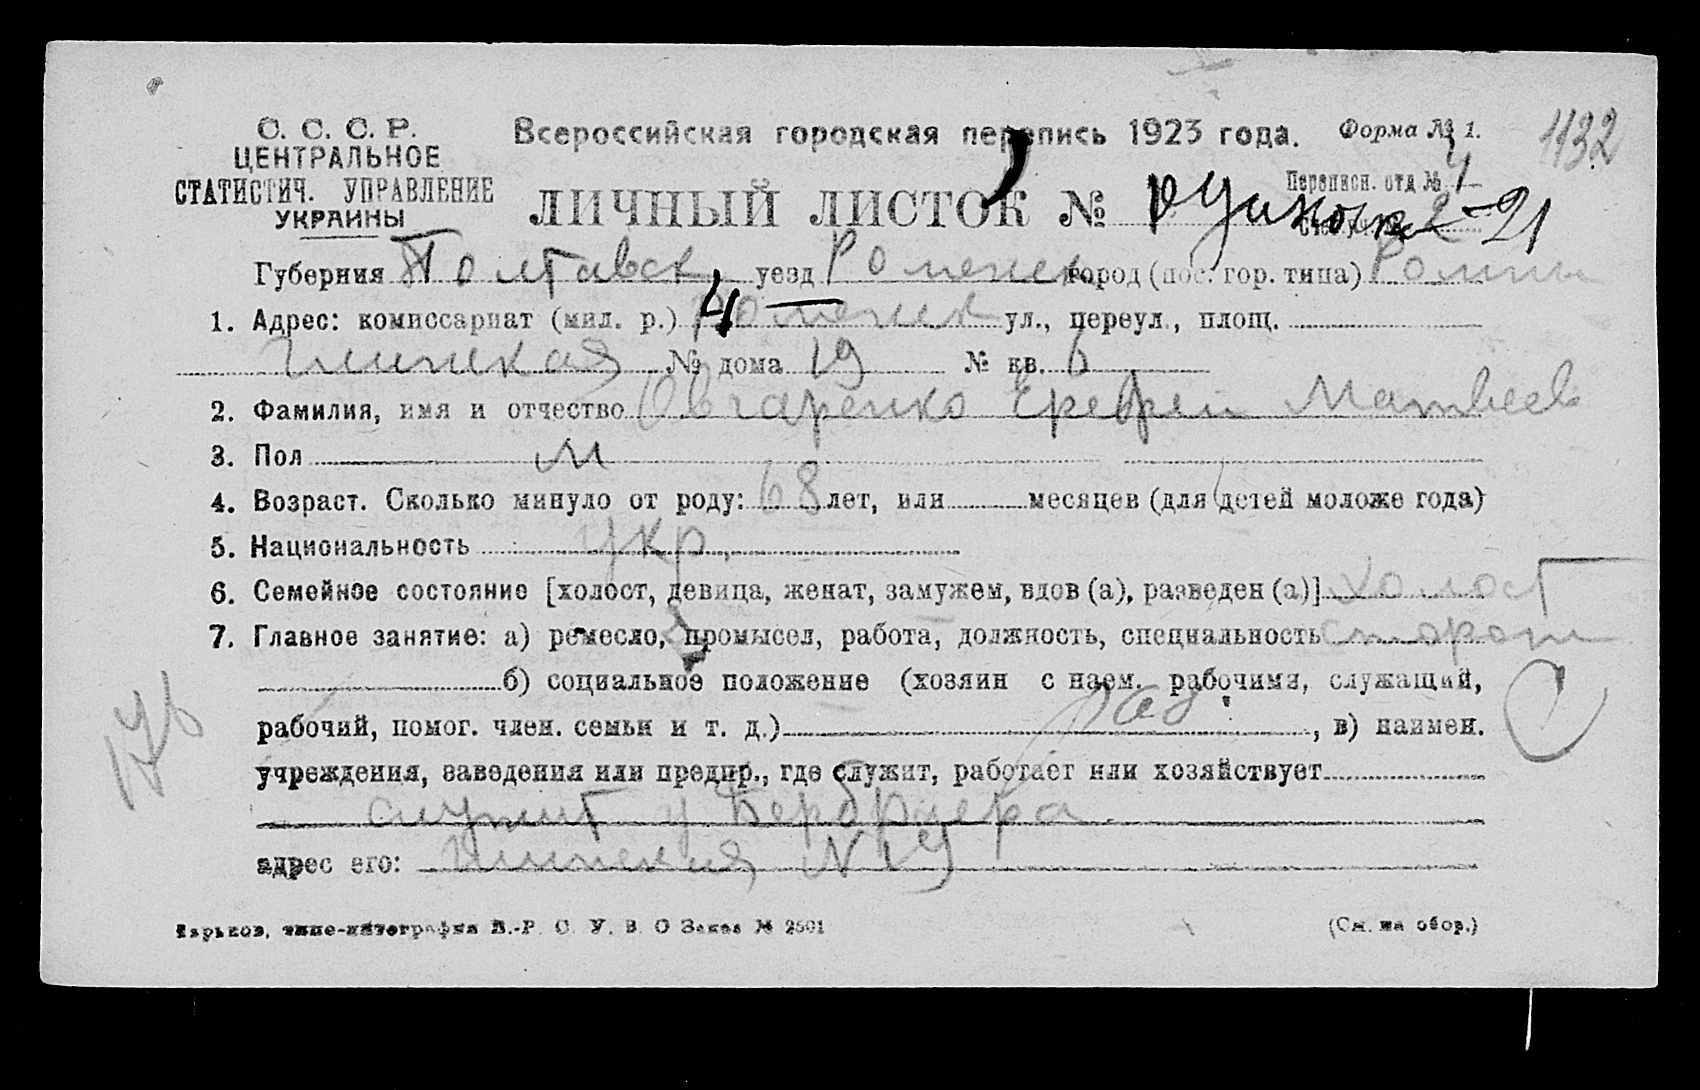 С. С. С. Р.
ЦЕНТРАЛЬНОЕ
СТАТИСТИЧ. УПРАВЛЕНИЕ
УКРАИНЫ
Всероссийская городская перепись 1923 года. Форма № 1.
1132
Переписн. отд № 4
ЛИЧНЫЙ ЛИСТОК № 2-21
Губерния Полтавск уезд Роменск город (пос. гор. типа) Ромны
1. Адрес: комиссариат (мил. р.) 4 Роменск ул., переул., площ.
№ дома 19 № кв. 6
2. Фамилия, имя и отчество Овчаренко Ефрем Матвеев
3. Пол м
4. Возраст. Сколько минуло от роду: 68 лет, или месяцев (для детей моложе года)
5. Национальность укр.
6. Семейное состояние [холост, девица, женат, замужем, вдов (а), разведен (а)] холост
7. Главное занятие: а) ремесло, промысел, работа, должность, специальность сторож
б) социальное положение (хозяин с наем. рабочими, служащий,
рабочий, помог. член. семьи и т. д.) раб. , в) наимен.
учреждения, заведения или предпр., где служит, работает или хозяйствует
служит у
адрес его: № 19
Харьков, типо-литография В.-Р. С. У. В. О Заказ № 2501
(См. на обор.)